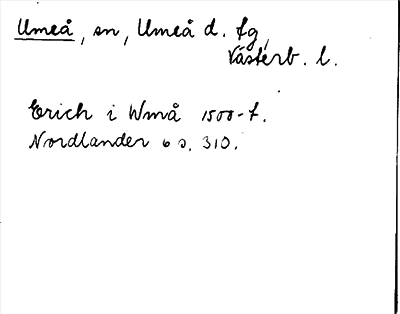 Umeå, sn, Umeå d. fg,
Västerb. l.
Erich i Wmå 1500-t.
Nordlander 6 s. 310.